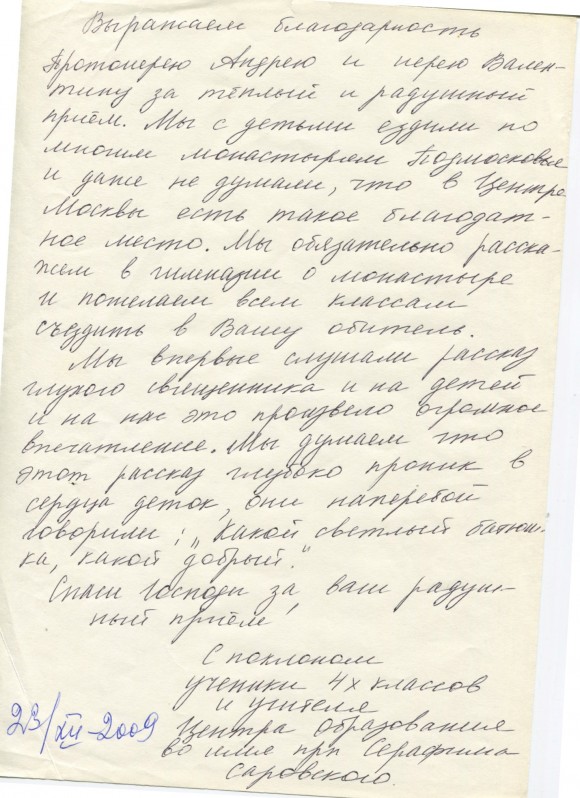 Выражаем благодарность
Протоиерею Андрею и иерею Вален-
тину за тёплый и радушный
приём. Мы с детьми ездили по
многим монастырям Подмосковья
и даже не думали, что в Центре
Москвы есть такое благодат-
ное место. Мы обязательно расска-
жем в гимназии о монастыре
и пожелаем всем классам
съездить в Вашу обитель.
Мы впервые слушали рассказ
глухого священника и на детей
и на нас это произвело огромное
впечатление. Мы думаем что
этот рассказ глубоко проник в
сердца деток, они наперебой
говорили: „Какой светлый батюш-
ка, какой добрый."
Спаси Господи за ваш радуш-
ный приём,
С поклоном
ученики 4х классов
и учителя
Центра образования
во имя прп Серафима
Саровского.
23/XII-2009